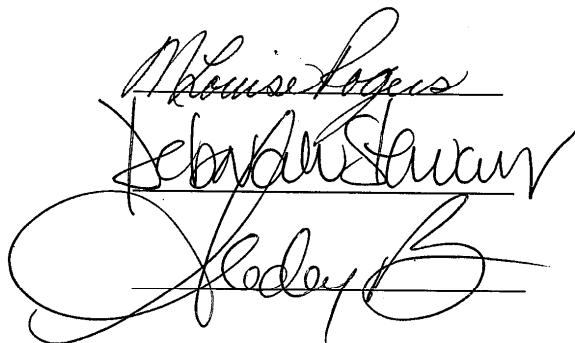 M Louise Rogers
Deborah Stewart
B